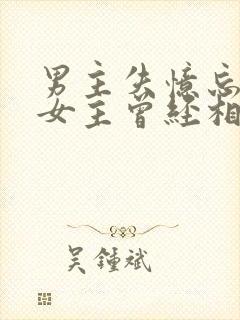 男主失憶忘
女主曾經相
吴鍾斌